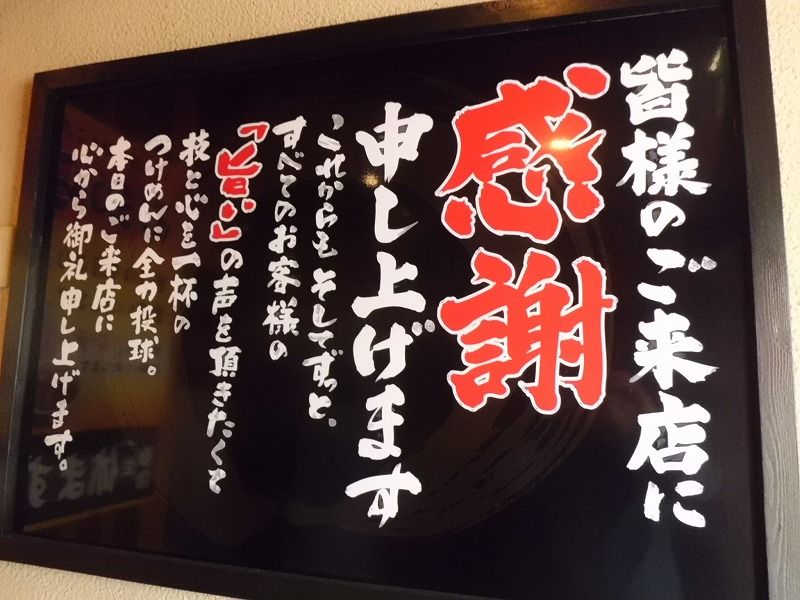 皆様のご来店に
感謝
申し上げます
これからもそしてずっと、
すべてのお客様の
「旨い」の声を頂きたくて
技と心を一杯の
つけめんに全力投球。
本日のご来店に
心から御礼申し上げます。